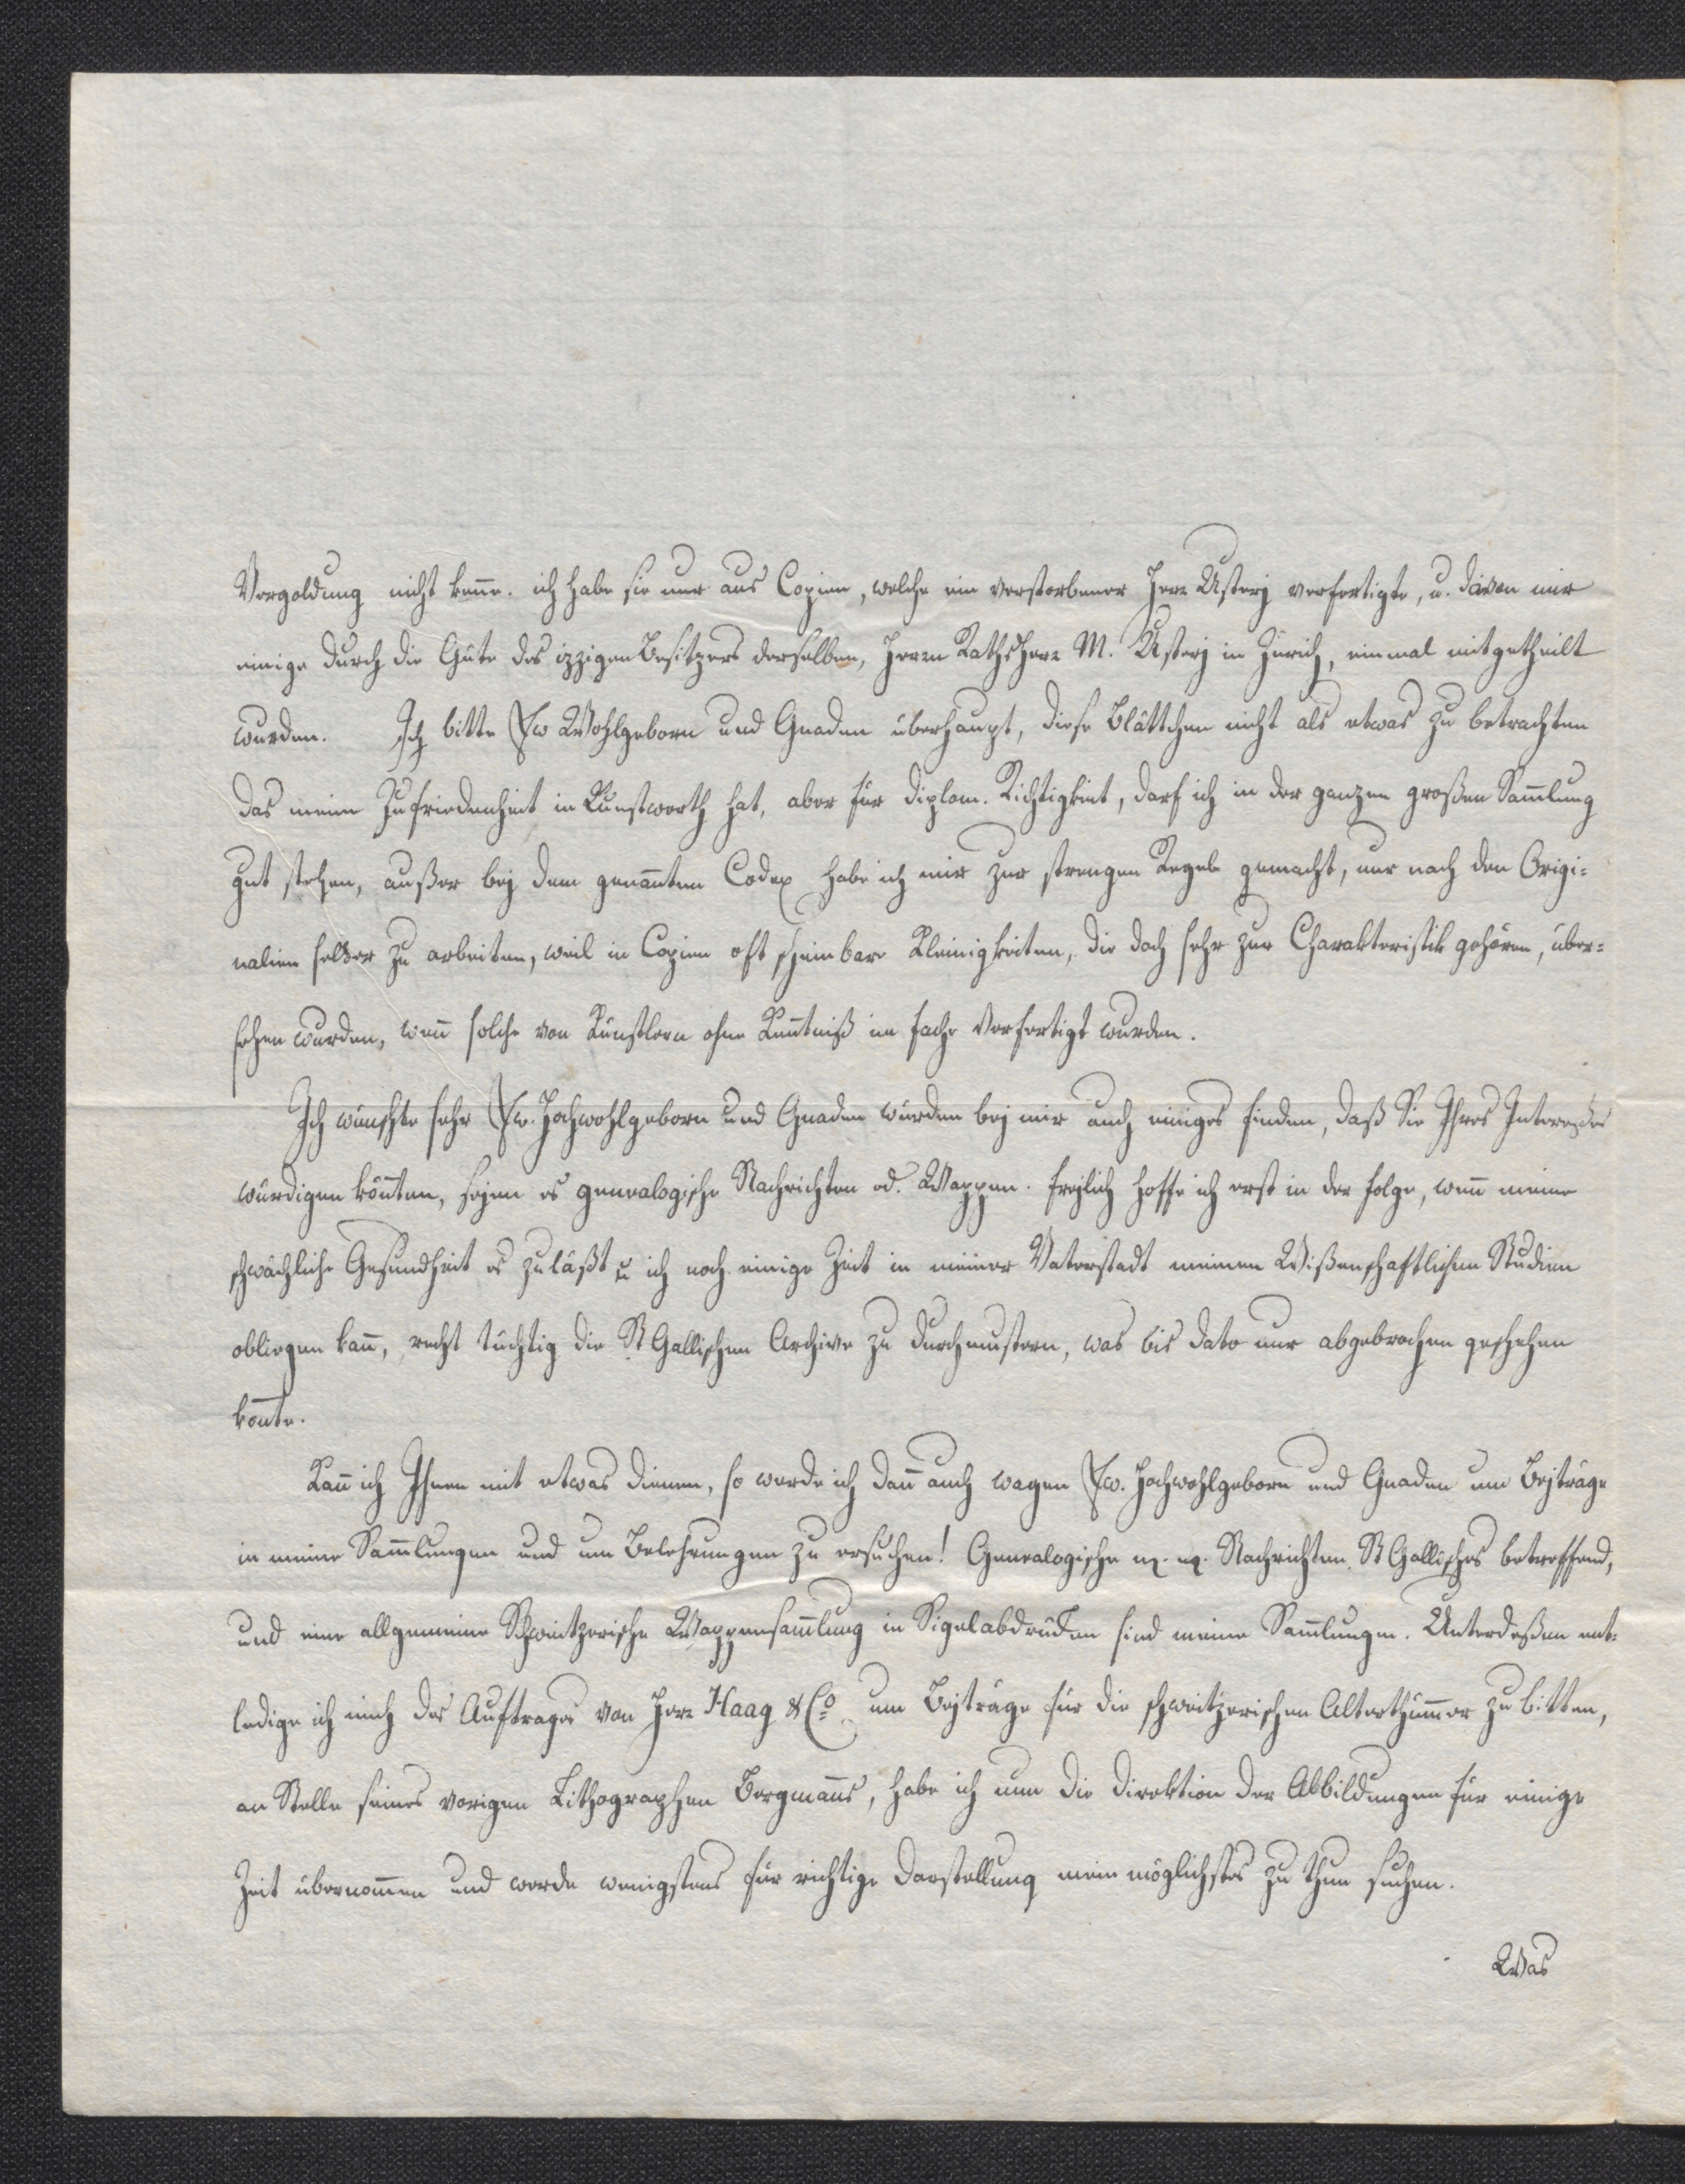 Vergoldung nicht keñe. ich habe sie nur aus Copien, welche ein verstorbener Herr Usterj verfertigte, u. davon mir
einige durch die Güte des izzigen Besitzers derselben, Herrn Rathsherr M. Usterj in Zürich, einmal mitgetheilt
wurden. Ich bitte Ew Wohlgeborn und Gnaden überhaupt, diese Blättchen nicht als etwas zu betrachten
das meine Zufriedenheit in Kunstwerth hat, aber für diplom. Richtigkeit, darf ich in der ganzen großen Sam̄lung
gut stehen, außer bej dem genañten Codex habe ich mir zur strengen Regel gemacht, nur nach den Origi=
nalien selber zu arbeiten, weil in Copien oft scheinbare Kleinigkeiten, die doch sehr zur Charakteristik gehören, über=
sehen wurden, weñ solche von Künstlern ohne Keñtniß im Fache verfertigt wurden.
Ich wünschte sehr Ew. Hochwohlgeborn und Gnaden würden bej mir auch einiges finden, daß Sie Ihres Intereßes
würdigen köñten, sejen es genealogische Nachrichten od. Wappen. Frejlich hoffe ich erst in der Folge, weñ meine
schwächliche Gesundheit es zuläßt u ich noch einige Zeit in meiner Vaterstadt meinen Wißenschaftlichen Studien
obliegen kañ, recht tüchtig die St Gallischen Archive zu durchmustern, was bis dato nur abgebrochen geschehen
koñte.
Kañ ich Ihnen mit etwas dienen, so werde ich dañ auch wagen Ew. Hochwohlgeborn und Gnaden um Bejträge
in meine Sam̄lungen und um Belehrungen zu ersuchen! Genealogische Nachrichten St Gallisches betreffend,
und eine allgemeine Schweitzerische Wappensam̄lung in Sigelabdrücken sind meine Sam̄lungen. Unterdeßen ent=
ledige ich mich des Auftrages von Herr Haag & Co um Bejträge für die schweitzerischen Alterthüm̄er zu bitten,
an Stelle seines vorigen Lithographen Bergmañs, habe ich nun die Direktion der Abbildungen für einige
Zeit übernom̄en und werde wenigstens für richtige Darstellung mein möglichstes zu thun suchen.
Was